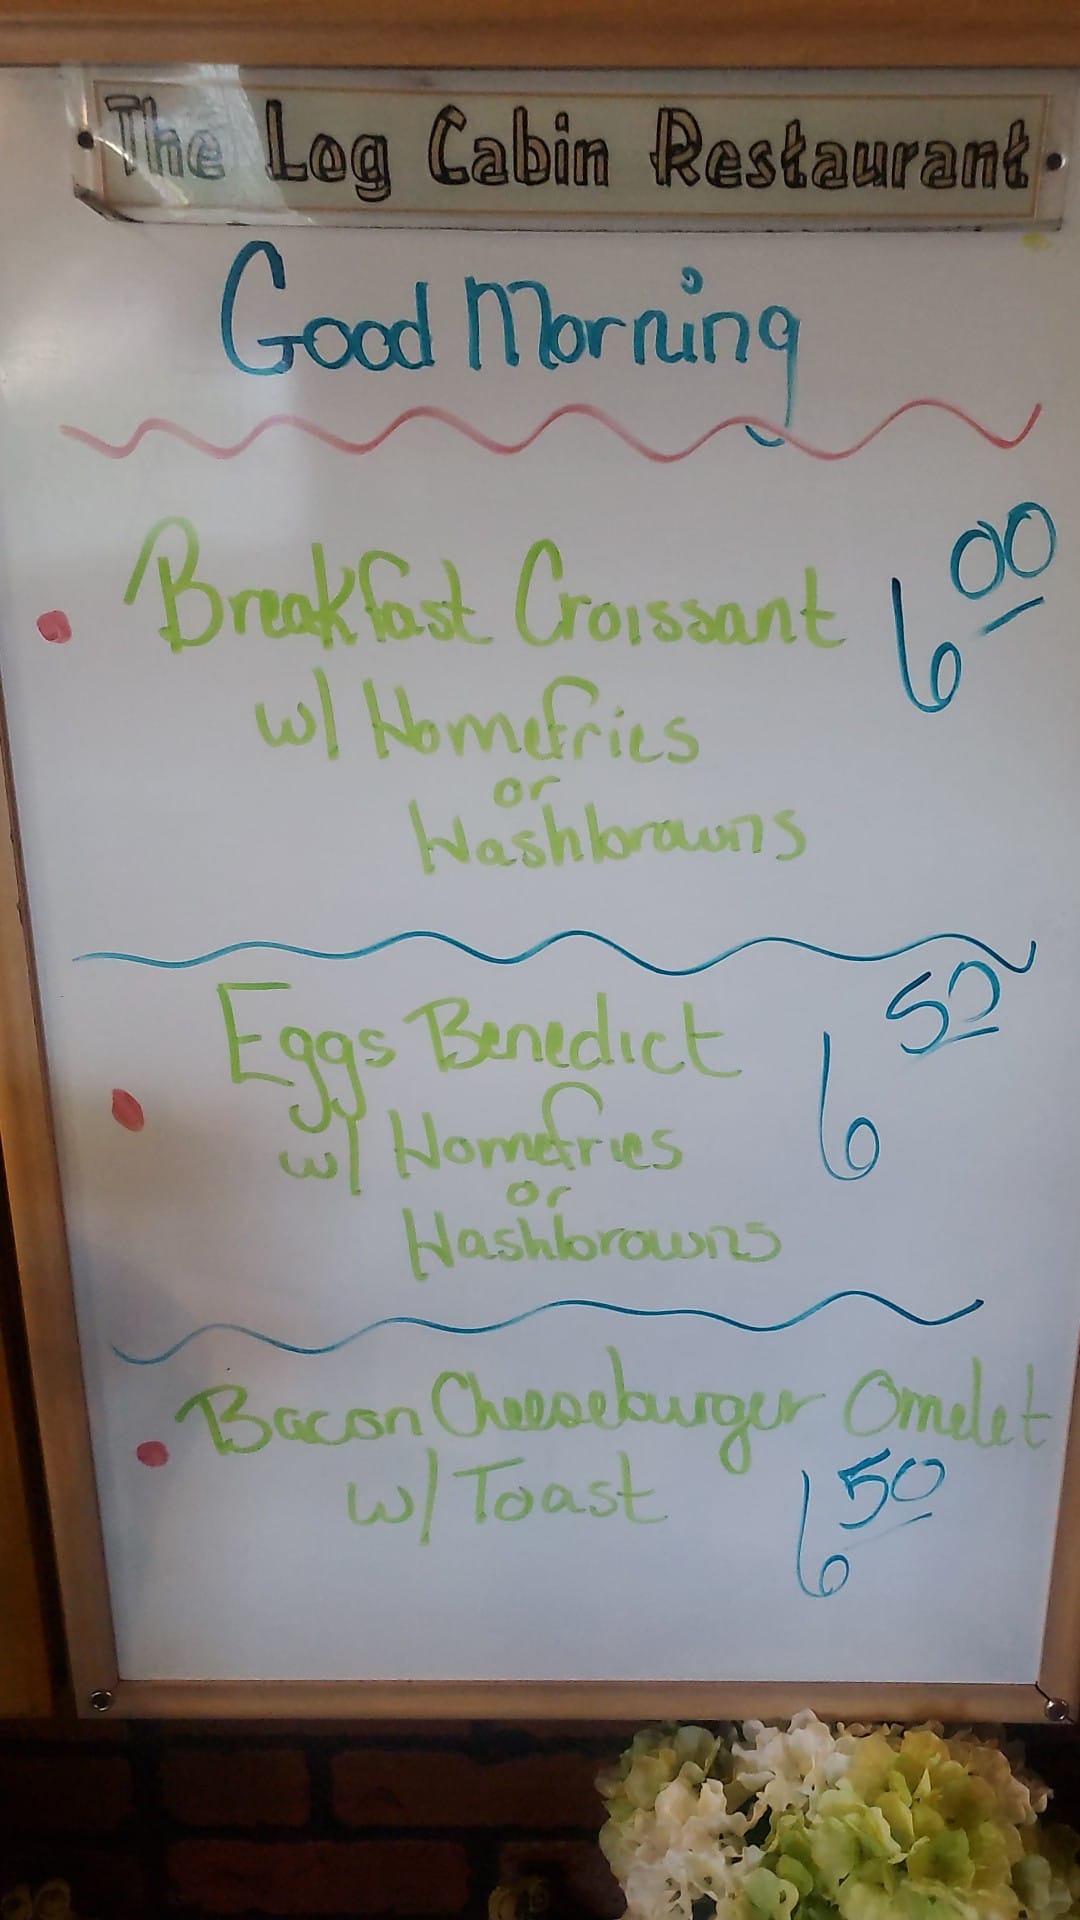 The Log Cabin Restaurant
Good Morning
Breakfast Croissant 6 00
w/ Homefries
or
Hashbrowns
Eggs Benedict 6 50
w/ Homefries
or
Hashbrowns
Bacon Cheeseburger Omelet
w/ Toast 6 50